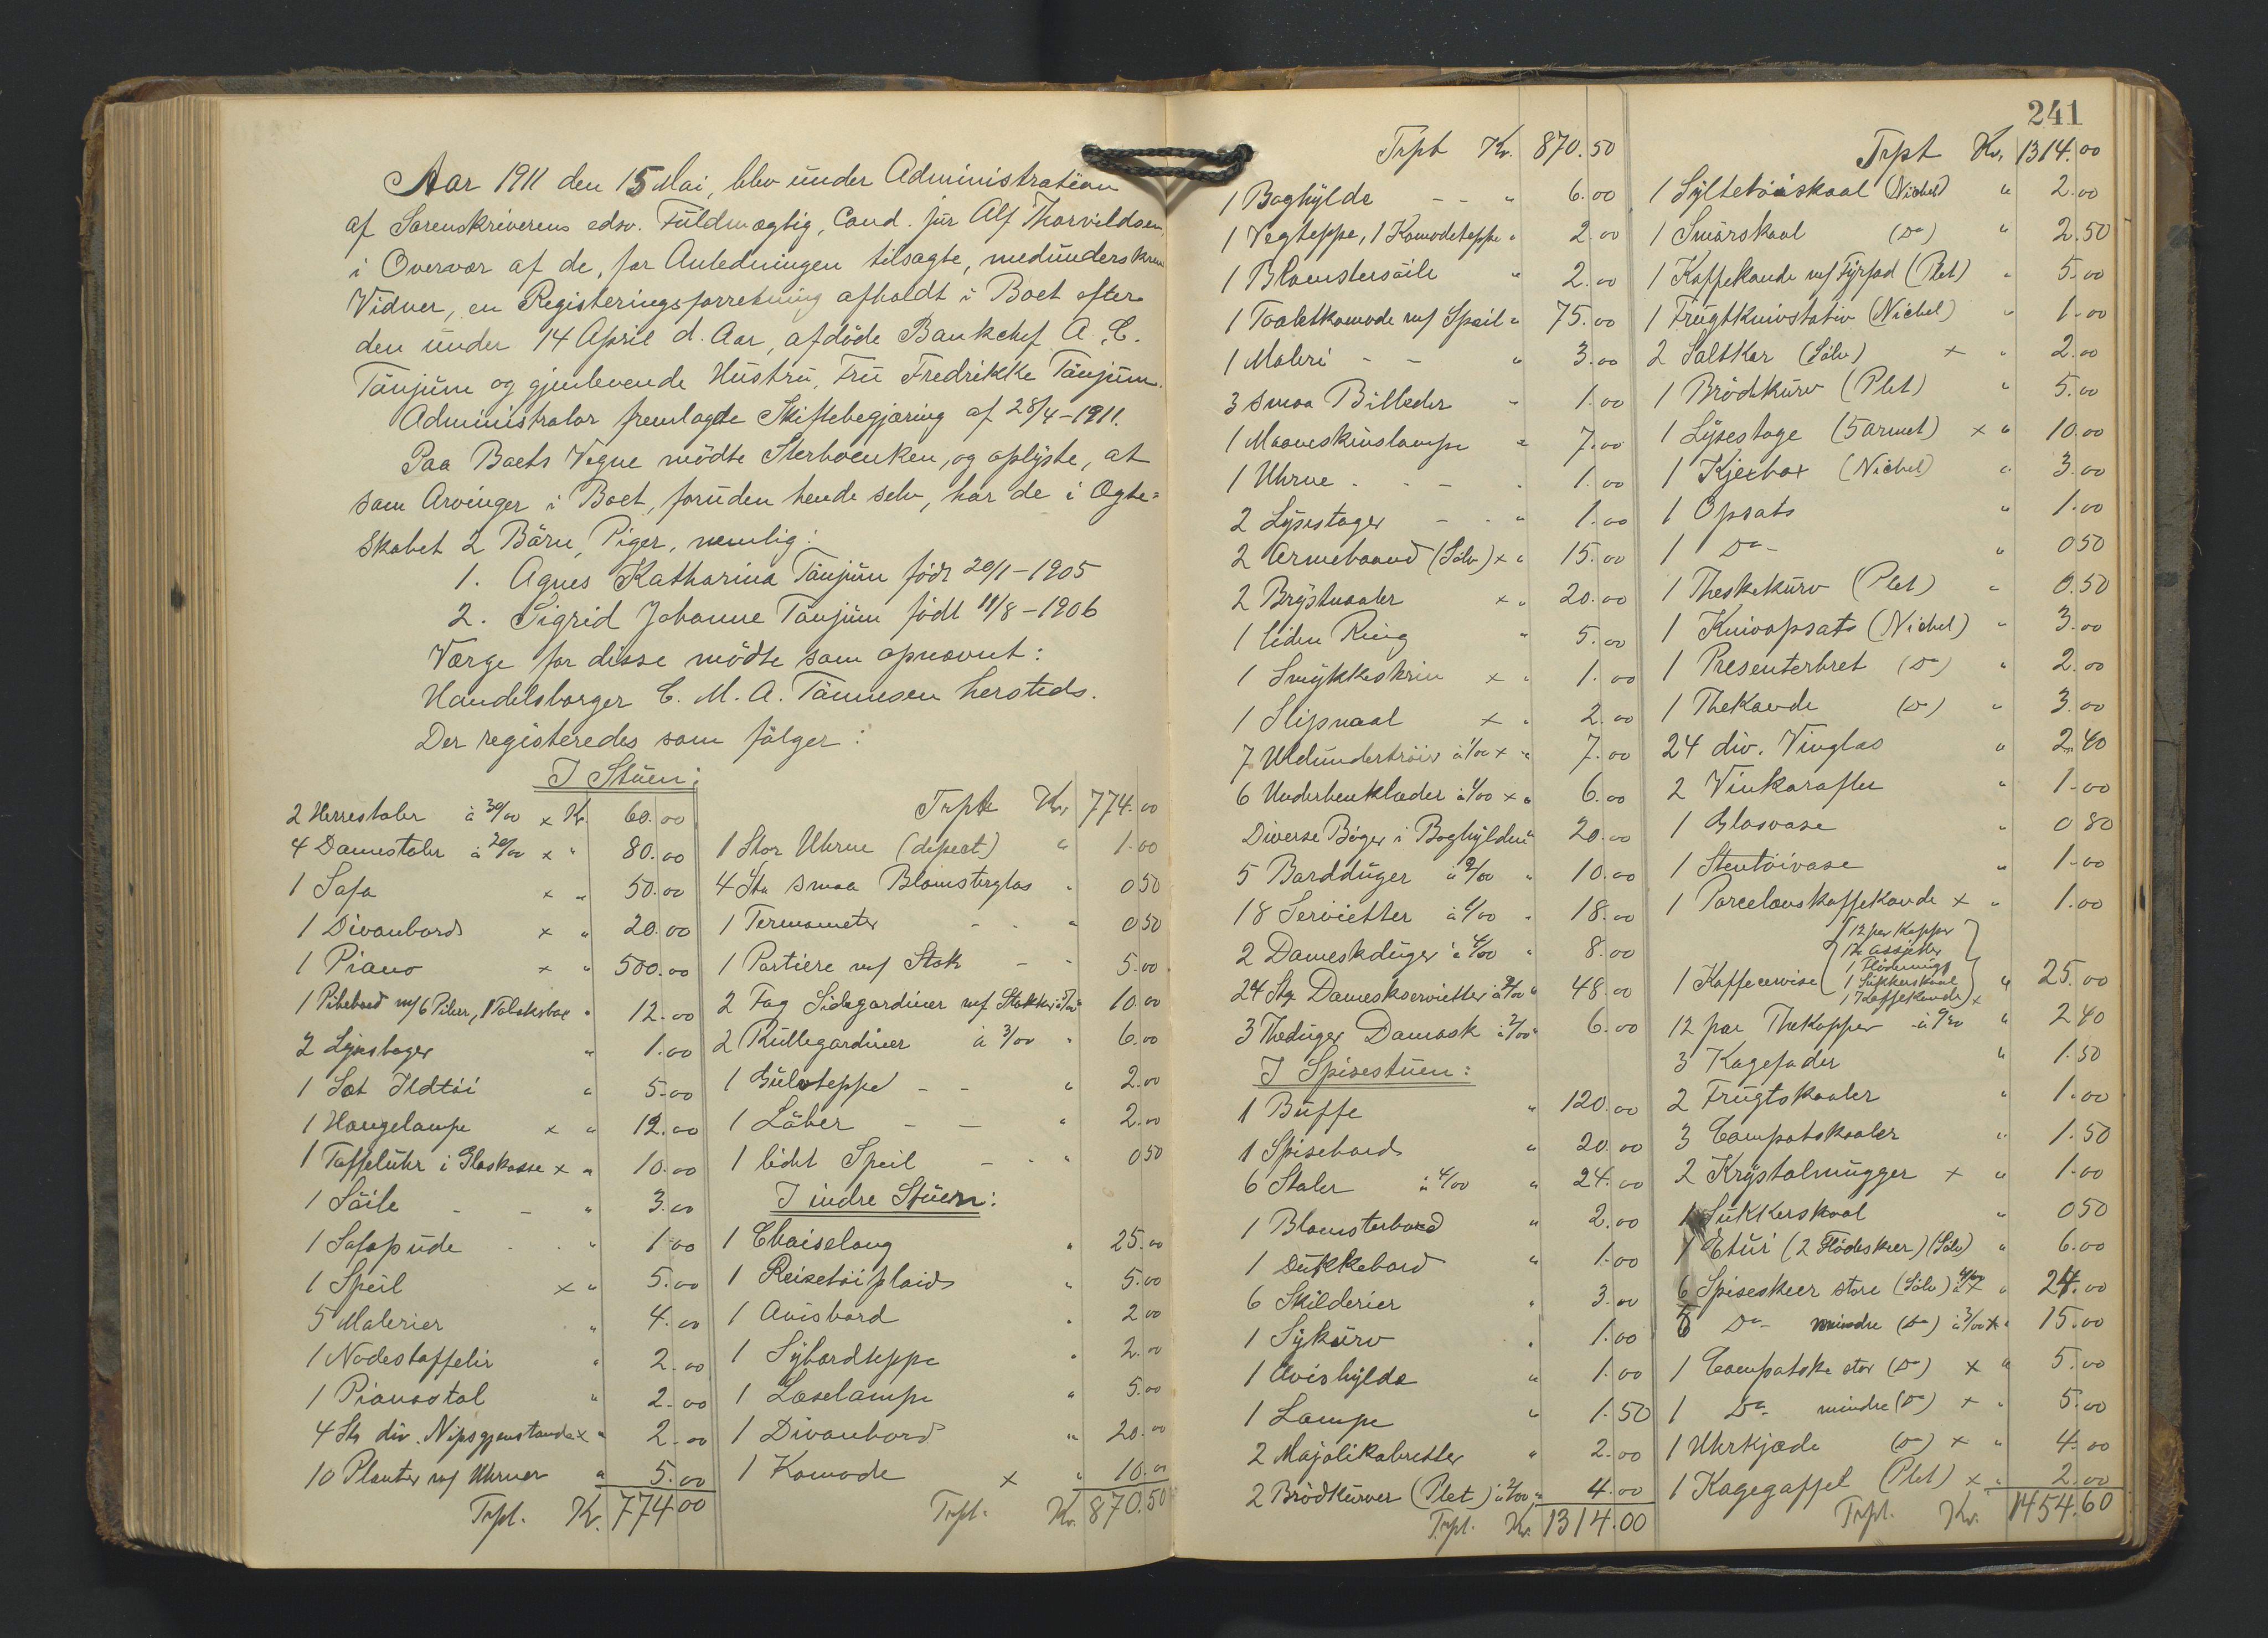 Aar 1911 den 15 Mai, blev under Administration
af Sorenskriverens edsv. Fuldmægtig, Cand. jur Alf Thorvildsen,
i Overvær af de, for Anledningen tilsagte, medunderskrevne
Vidner, en Registeringsforretning afholdt i Boet efter
den under 14 April d. Aar, afdöde Bankchef A. C.
Tänjum og gjenlevende Hustru, Fru Fredrikke Tänjum.
Administrator fremlagde Skiftebegjæring af 28/4-1911.
Paa Boets Vegne mödte Sterboenken, og oplyste, at
som Arvinger i Boet, foruden hende selv, har de i Ægte=
skabet 2 Börn, Piger, nemlig:
1. Agnes Katharina Tänjum född 20/1-1905
2. Sigrid Johanne Tänjum födt 11/8-1906
Værge for disse mödte som opnævnt:
Handelsborger C. M. A. Tönnesen hersteds.
Der registeredes som fölger:
I Stuen:
2 Herrestoler à 30/00 x Kr. 60.00
4 Damestoler à 20/00 x " 80.00
1 Sofa x " 50.00
1 Divanbord x " 20.00
1 Piano x " 500.00
1 Pibebord m/ 6 Piber, 1 Tobaksbox " 12.00
2 Lysestager " 1.00
1 Sæt Ildtöi " 5.00
1 Hængelampe x " 12.00
1 Taffeluhr i Glaskasse x " 10.00
1 Söile - - " 3.00
1 Sofapude - - " 1.00
1 Speil x " 5.00
5 Malerier " 4.00
1 Nodestaffeli " 2.00
1 Pianostol " 2.00
4 Stk div. Nipsgjenstande x " 2.00
10 Planter m/ Uhrner " 5.00
Trpt. Kr. 774 00
Trpt Kr 774.00
1 Stor Uhrne (defect) " 1.00
4 Stk smaa Blomsterglas " 0 50
1 Termometer - - " 0 50
1 Portiere m/ Stok - - 5.00
2 Fag Sidegardiner m/ Stokker à 5/00 " 10.00
2 Rullegardiner à 3/00 " 6.00
1 Gulvteppe - - " 2.00
1 Löber - - " 2.00
1 lidet Speil - - " 0 50
I indre Stuen:
1 Chaiselong " 25.00
1 Reisetöiplaids " 5.00
1 Avisbord " 2 00
1 Sybordteppe " 2.00
1 Læselampe " 5.00
1 Divanbord " 20.00
1 Komode x " 10.00
Trpt. Kr. 870.50
241
Trpt Kr. 870.50
1 Boghylde - - " 6.00
1 Vegteppe, 1 Komodeteppe " 2.00
1 Blomstersöile " 2.00
1 Toaletkomode m/ Speil " 75.00
1 Maleri - - " 3.00
3 smaa Billeder " 1.00
1 Maaneskinslampe " 7.00
1 Uhrne - - - " 1.00
2 Lysestager - - " 1.00
2 Armebaand (Sölv) x " 15.00
2 Brystnaaler x " 20.00
1 liden Ring " 5.00
1 Smykkeskrin x " 1.00
1 Slipsnaal x " 2.00
7 Uldundertröier à 1/00 x " 7.00
6 Underbenklæder à 1/00 x " 6.00
Diverse Böger i Boghylden " 20.00
5 Bordduger à 2/00 " 10.00
18 Servietter à 1/00 " 18.00
2 Dameskduger à 4/00 " 8.00
24 Stk. Dameskservietter à 2/00 " 48.00
3 Theduger Damask à 2/00 " 6.00
I Spisestuen:
1 Buffe " 120.00
1 Spisebord " 20.00
6 Stoler à 4/00 " 24.00
1 Blomsterbord " 2.00
1 Dukkebord " 1.00
6 Skilderier " 3.00
1 Sykurv " 1.00
1 Avishylde " 1.00
1 Lampe " 1.50
2 Majolikabretter " 2.00
2 Brödkurver (Plet) à 2/00 " 4.00
Trpt. Kr 1314.00
Trpt Kr. 1314.00
1 Syltetöiskaal (Nickel) " 2.00
1 Smörskaal (Do) " 2.50
1 Kaffekande m/ Fyrfad (Plet) " 5.00
1 Frugtknivstativ (Nickel) " 1.00
2 Saltkar (Sölv) x " 2.00
1 Brödkurv (Plet) " 5.00
1 Lysestage (5 armet) x " 10.00
1 Kjexbox (Nickel) " 3.00
1 Opsats " 1.00
1 Do- " 0 50
1 Theskekurv (Plet) " 0.50
1 Knivopsats (Nickel) " 3.00
1 Presenterbret (Do) " 2.00
1 Thekande (Do) " 3.00
24 div. Vinglas " 2.40
2 Vinkarafler " 1.00
1 Glasvase " 0 80
1 Stentöivase " 1.00
1 Porcelænskaffekande x " 1.00
12 par Kopper
12 assietter
1 Flödemugge
1 Kaffeservise 1 Sukkerskaal " 25.00
1 Kaffekande x
12 par Thekopper à 0/20 " 2 40
3 Kagefader " 1.50
2 Frugtskaaler " 1.00
3 Compotskaaler " 1.50
2 Krystalmugger x " 1.00
1 Sukkerskaal " 0 50
1 Etui (2 Flödeskeer) (Sölv) " 6.00
6 Spiseskeer store (Sölv) à 4/00 x " 24.00
5 Do- mindre (Do) à 3/00 x " 15.00
1 Compotske stor (Do) x " 5.00
1 Do- mindre (Do) x " 5.00
1 Uhrkjæde (Do) x " 4.00
1 Kagegaffel (Plet) x " 2.00
Trpt. Kr. 1454.60